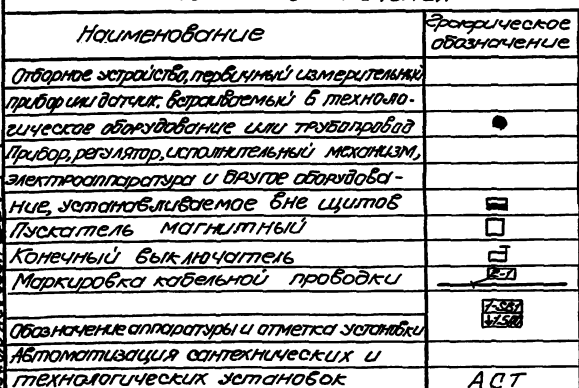 Наименование
Графическое
обозначение
Отборное устройство, первичный измерительный
прибор или датчик, встраиваемый в техноло-
гическое оборудование или трубопровод
Прибор, регулятор, исполнительный механизм,
электроаппаратура и другое оборудова-
ние, устанавливаемое вне щитов
Пускатель магнитный
Конечный выключатель
Маркировка кабельной проводки
Обозначение аппаратуры и отметка установки
Автоматизация сантехнических и
технологических установок АСТ